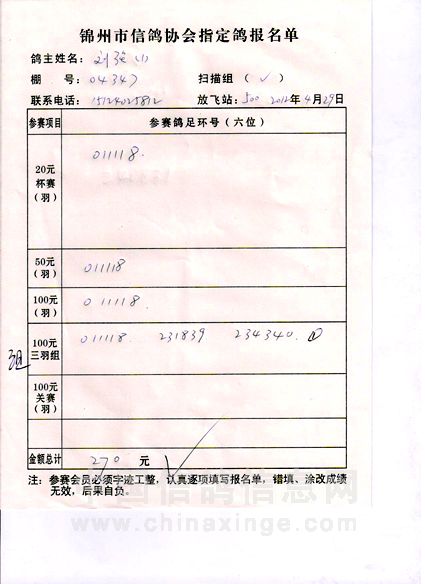 锦州市信鸽协会指定鸽报名单
鸽主姓名：刘
棚 号：04347 扫描组（✓）
联系电话：15124025812 放飞站：500 2012年4月29日
参赛项目 参赛鸽足环号（六位）
20元
杯赛
（羽） 011118.
50元
（羽） 011118
100元
（羽） 011118.
组 100元
三羽组 011118. 231839 234340. ①
100元
关赛
（羽）
金额总计 270 元
注：参赛会员必须字迹工整，认真逐项填写报名单，错填、涂改成绩
无效，后果自负。
中国信鸽信息网
www.chinaxinge.com